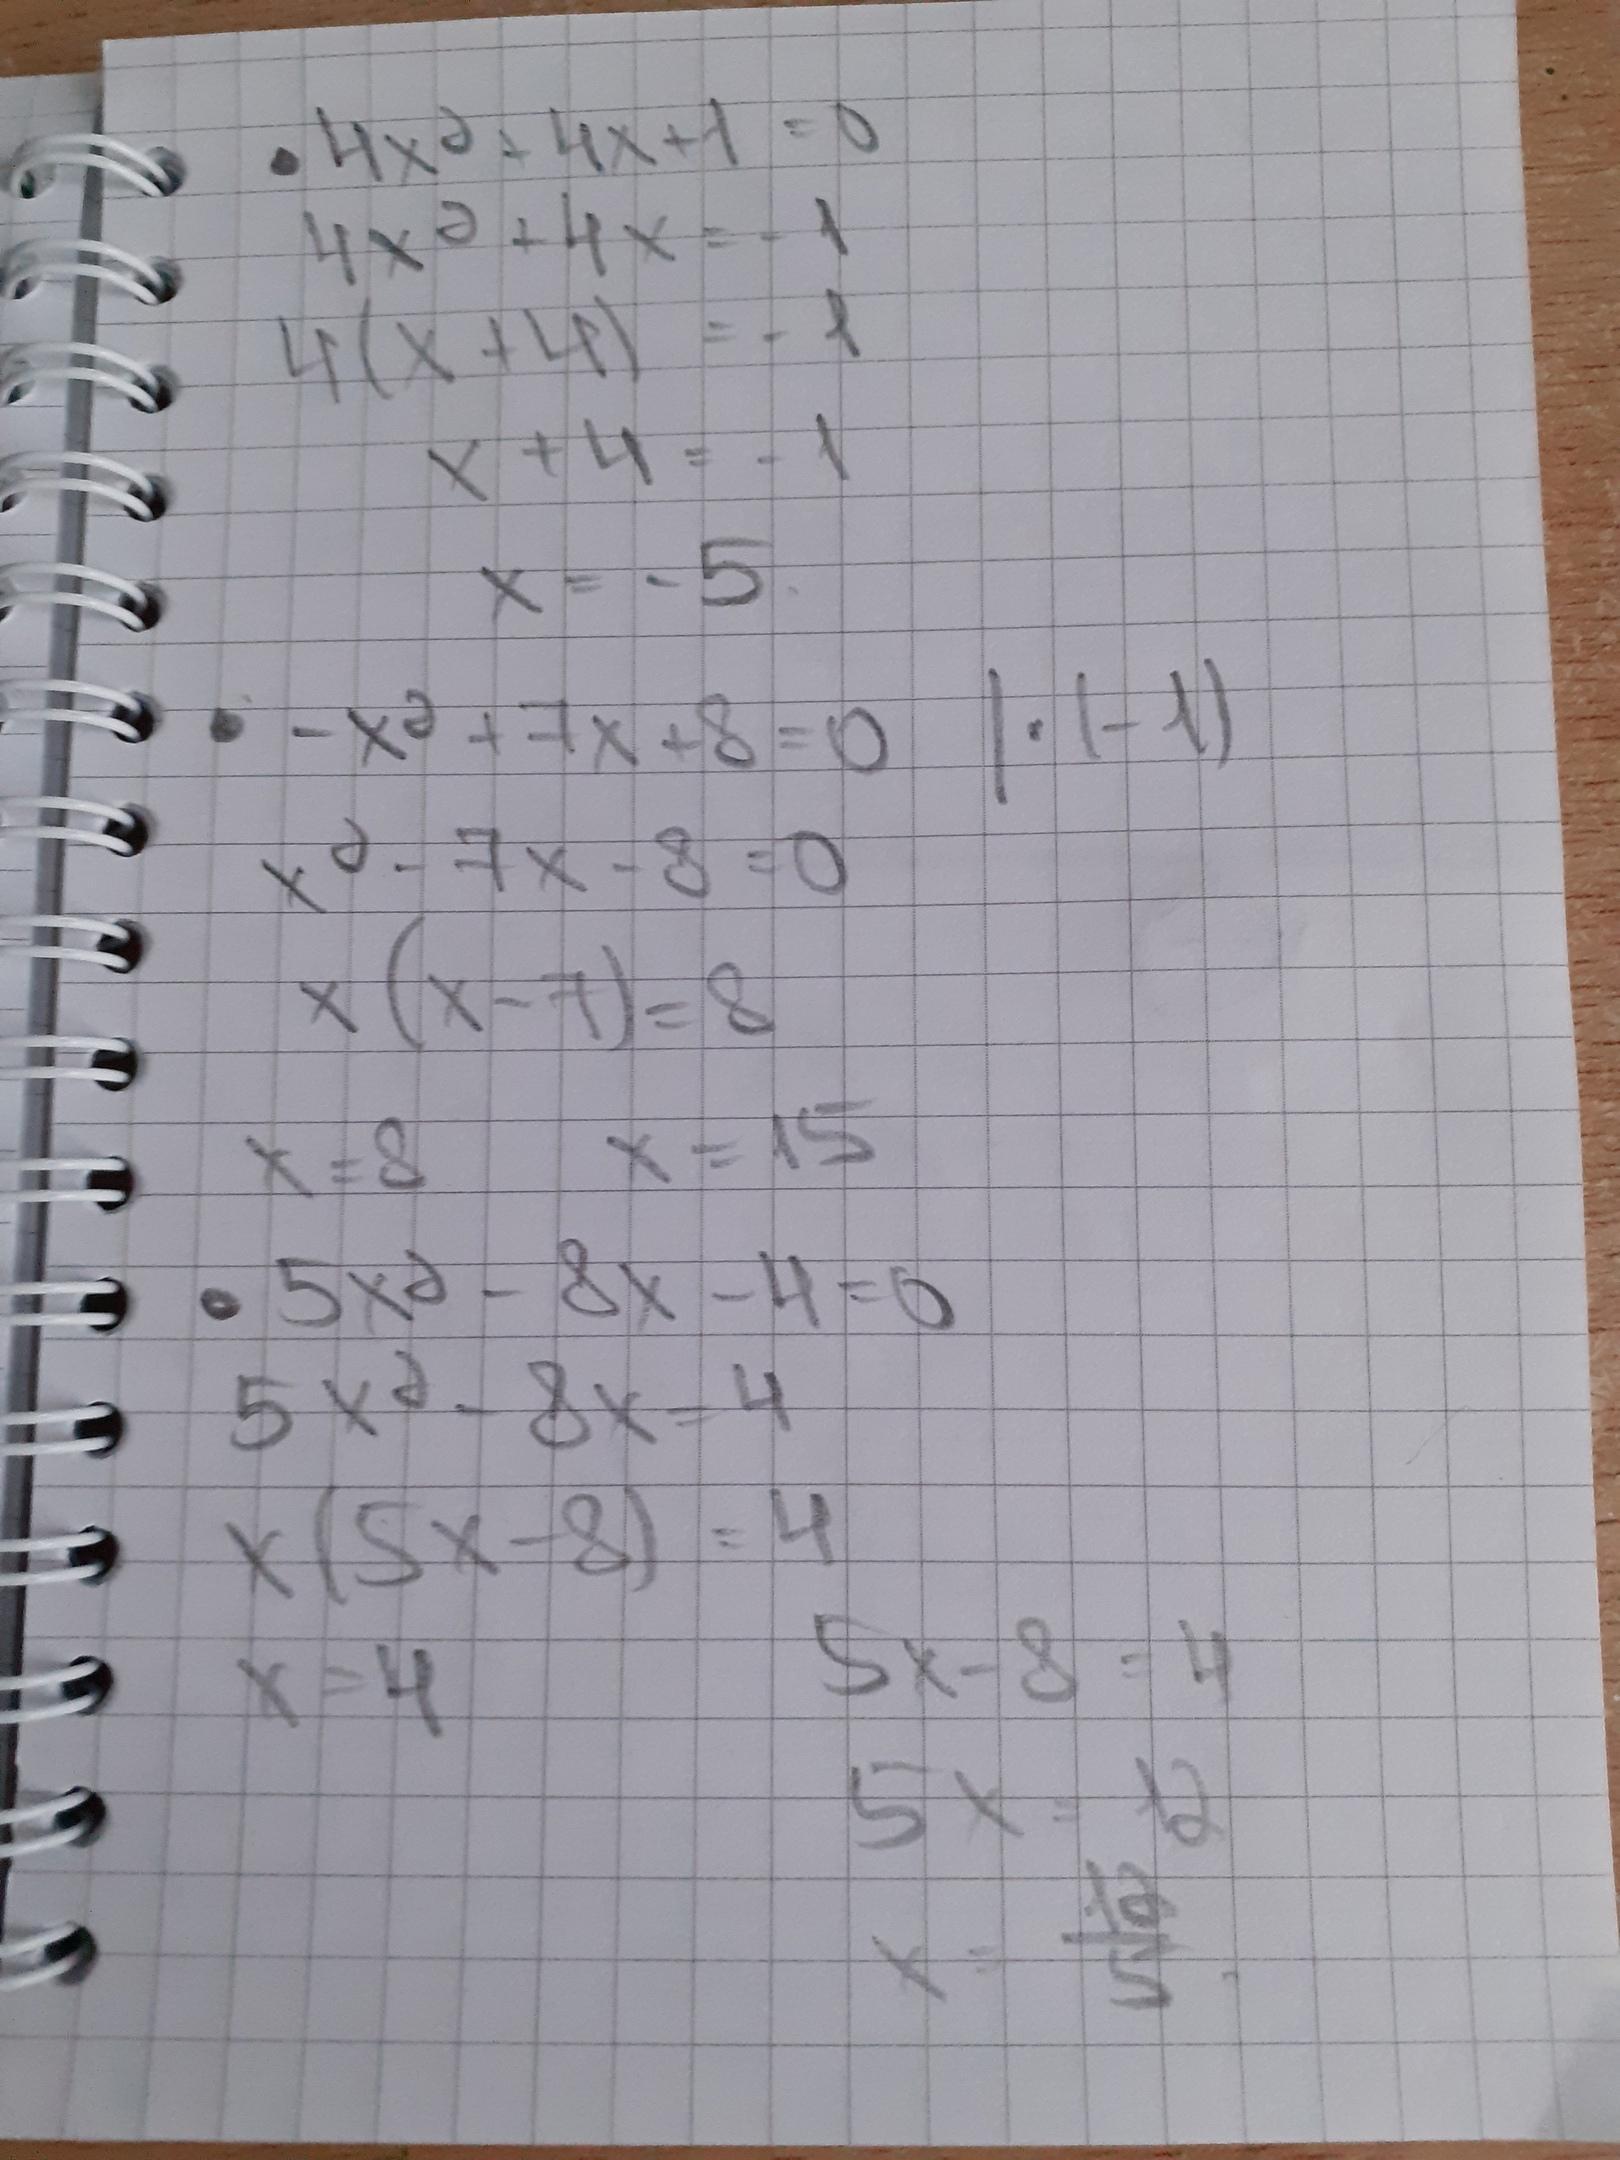 • 4x² + 4x + 1 = 0
4x² + 4x = -1
4(x + 4) = -1
x + 4 = -1
x = -5.
• -x² + 7x + 8 = 0 | · (-1)
x² - 7x - 8 = 0
x(x - 7) = 8
x = 8 x = 15
• 5x² - 8x - 4 = 0
5x² - 8x = 4
x(5x - 8) = 4
x = 4 5x - 8 = 4
5x = 12
x = 12/5.